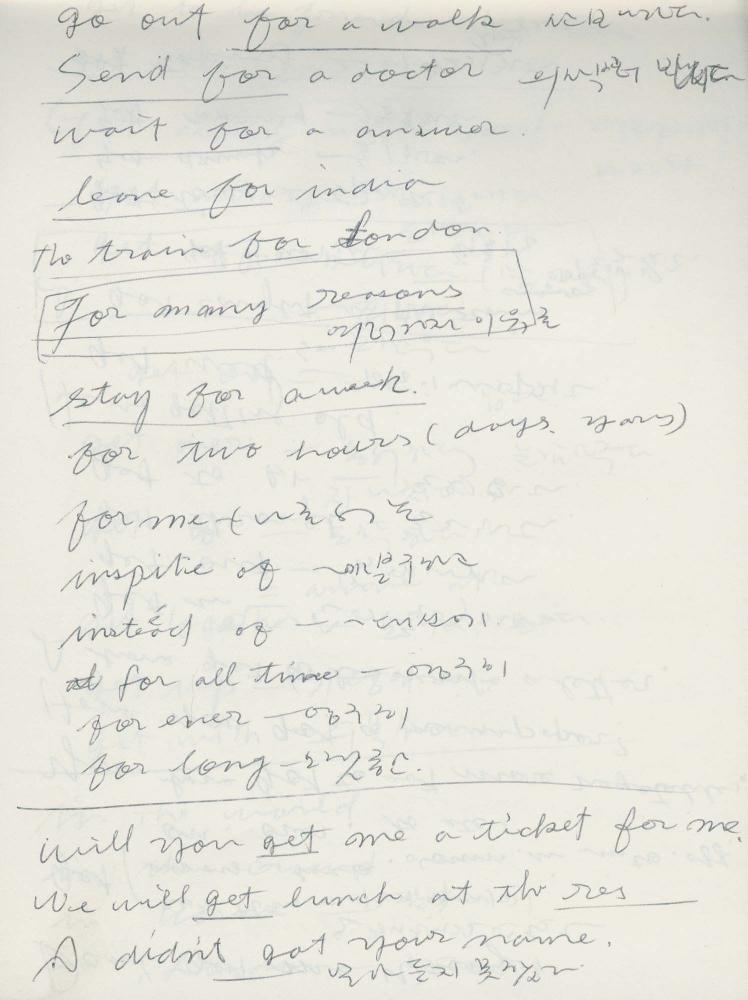 go out for a walk
Send for a doctor
wait for a answer.
leave for india
The train for London.
For many reasons
여러가지 이유로
stay for a week.
for two hours (days. years)
for me
inspitie of
instead of
for all time — 영구히
for ever — 영구히
for long — 오랫동안.
will you get me a ticket for me.
We will get lunch at the res
I didn't got your name.
알아 듣지 못했다.